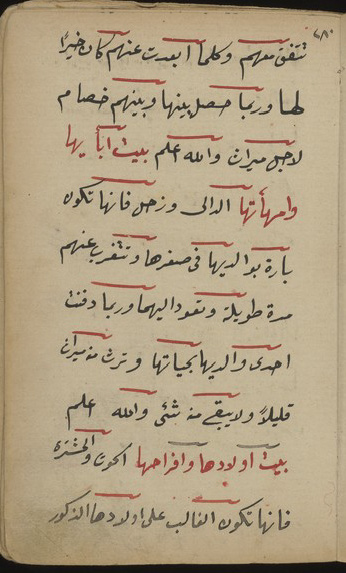 تتفق معهم وكلما ابعدت عنهم كان خيرًا
لها وربما حصل بينها وبينهم خصام
لاجل ميراث والله اعلم بيت ابآيها
وامهأتها الدالى وزحل فانها تكون
بارة بوالديها فى صغرها وتتغرب عنهم
مدة طويلة وتعود اليهما وربما دفنت
احدى والديها بحياتها وترث من ميراث
قليلاً ولا يبقے من شئى والله اعلم
بيت اولادها وافراحها الحوت والمشترى
فانها تكون الغالب على اولادها الذكور